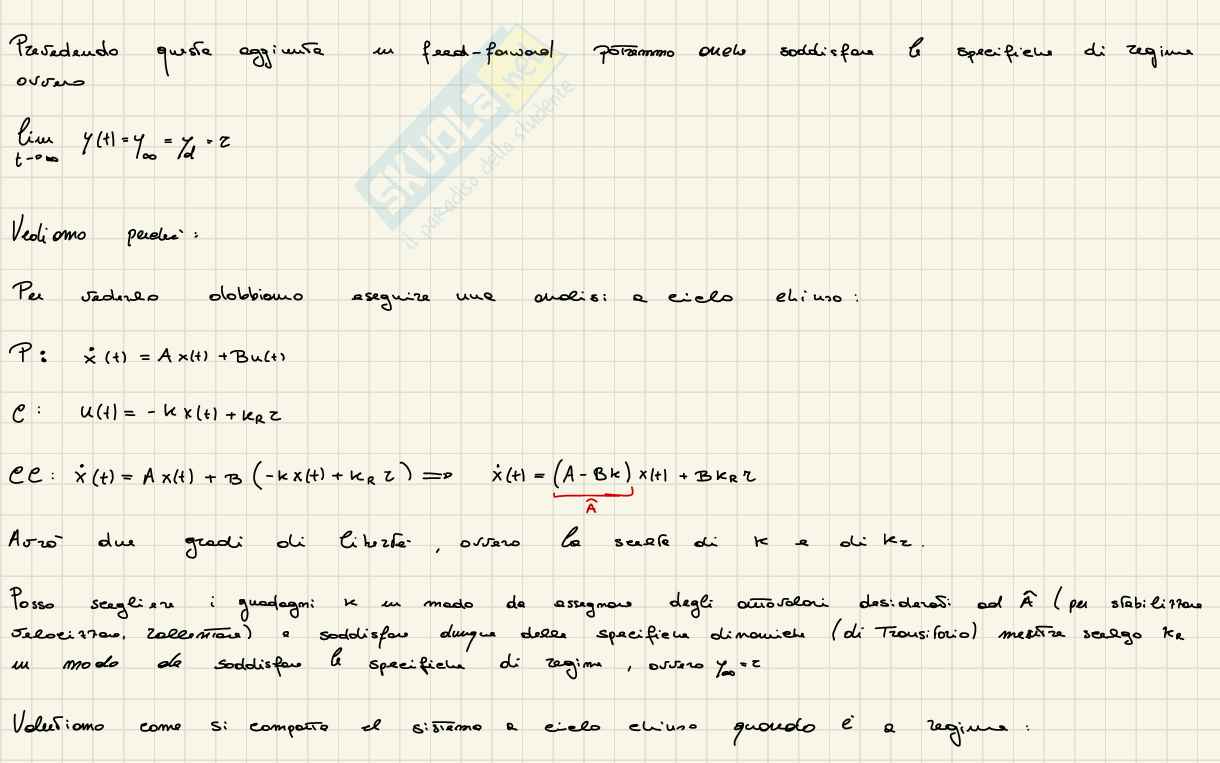 Prevedendo questa aggiunta in feed-forward potremmo anche soddisfare le specifiche di regime
ovvero
lim y(t) = y∞ = yd = r
t→∞
SKUOLA.net
il paradiso dello studente
Vediamo perché:
Per vederlo dobbiamo eseguire una analisi a ciclo chiuso:
P: ẋ(t) = Ax(t) + Bu(t)
C: u(t) = -Kx(t) + KR r
CC: ẋ(t) = Ax(t) + B(-Kx(t) + KR r) ⟹ ẋ(t) = (A - BK) x(t) + BKR r
Â
Avrò due gradi di libertà, ovvero la scelta di K e di Kr.
Posso scegliere i guadagni K in modo da assegnare degli autovalori desiderati ad Â (per stabilizzare
velocizzare, rallentare) e soddisfare dunque delle specifiche dinamiche (di Transitorio) mentre scelgo KR
in modo da soddisfare le specifiche di regime, ovvero y∞ = r
Valutiamo come si comporta il sistema a ciclo chiuso quando è a regime: